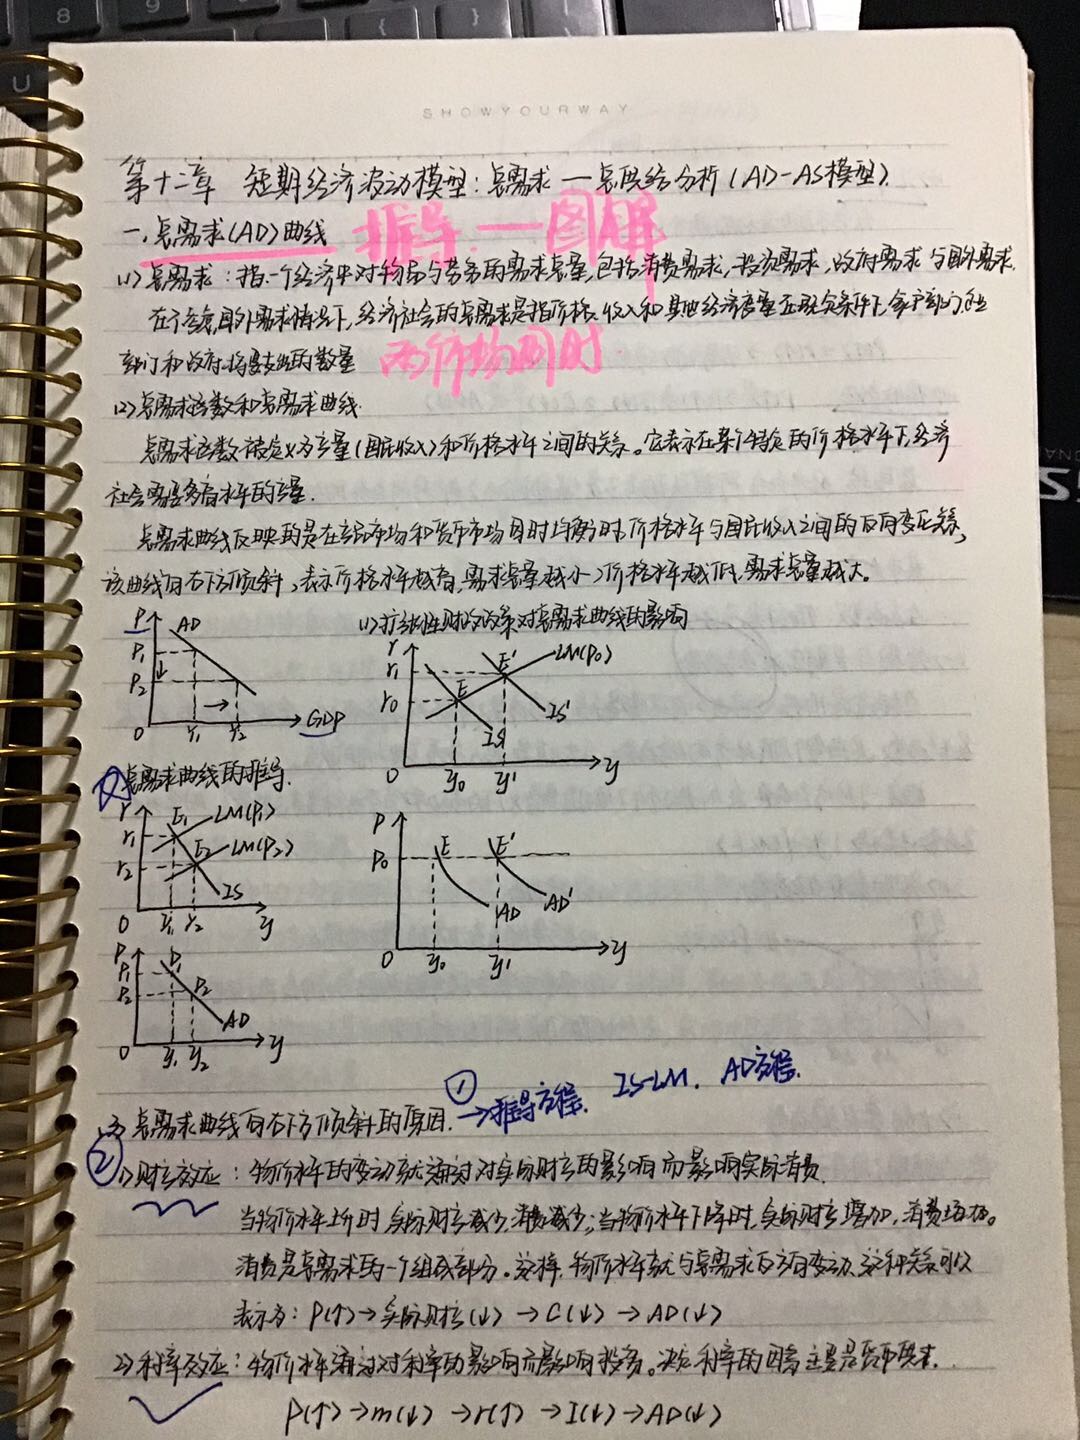 SHOWYOURWAY
第十二章 短期经济波动模型：总需求—总供给分析（AD-AS模型）
一.总需求（AD）曲线 推导.—图解
(1)总需求：指一个经济中对物品与劳务的需求总量，包括消费需求、投资需求、政府需求与国外需求.
在不考虑国外需求情况下，经济社会的总需求是指价格、收入和其他经济变量在既定条件下，家户部门、企业
部门和政府将要支出的数量 两个市场同时
(2)总需求函数和总需求曲线.
总需求函数被定义为产量(国民收入)和价格水平之间的关系。它表示在某个特定的价格水平下，经济
社会需要多高水平的产量.
总需求曲线反映的是在产品市场和货币市场同时均衡时，价格水平与国民收入之间的反向变化关系，
该曲线向右下方倾斜，表示价格水平越高，需求总量越小；价格水平越低，需求总量越大。
P AD P1 P2 0 Y1 Y2 GDP
(1)扩张性财政政策对总需求曲线的影响
r r1 r0 E E' LM(P0) IS IS' 0 y0 y1 y
总需求曲线的推导.
r r1 r2 E1 E2 LM(P1) LM(P2) IS 0 Y1 Y2 y
P P0 E E' AD AD' 0 y0 y1 y
P P1 P2 P1 P2 AD 0 y1 y2 y
总需求曲线向右下方倾斜的原因. ① →推导方程. IS-LM. AD方程.
② 1)财产效应：物价水平的变动就通过对实际财产的影响而影响实际消费.
当物价水平上升时，实际财产减少，消费减少；当物价水平下降时，实际财产增加，消费增加。
消费是总需求的一个组成部分。这样，物价水平就与总需求反方向变动，这种关系可以
表示为：P(↑)→实际财产(↓)→C(↓)→AD(↓)
2)利率效应：物价水平通过对利率的影响而影响投资。决定利率的因素主要是货币供求.
P(↑)→m(↓)→r(↑)→I(↓)→AD(↓)